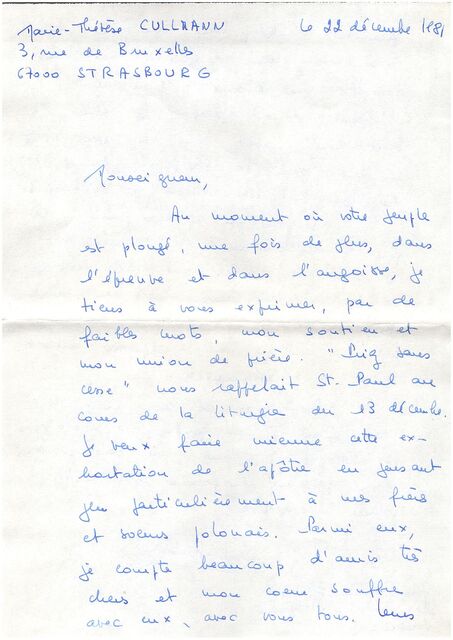 Marie-Thérèse CULLMANN
le 22 décembre 1981
3, rue de Bruxelles
67000 STRASBOURG
Monseigneur,
Au moment où votre peuple
est plongé, une fois de plus, dans
l'épreuve et dans l'angoisse, je
tiens à vous exprimer, par de
faibles mots, mon soutien et
mon union de prière. "Priez sans
cesse" nous rappelait St. Paul au
cours de la liturgie du 13 décembre.
Je veux faire mienne cette ex-
hortation de l'apôtre en pensant
plus particulièrement à mes frères
et soeurs polonais. Parmi eux,
je compte beaucoup d'amis très
chers et mon coeur souffre
avec eux, avec vous tous. Leurs